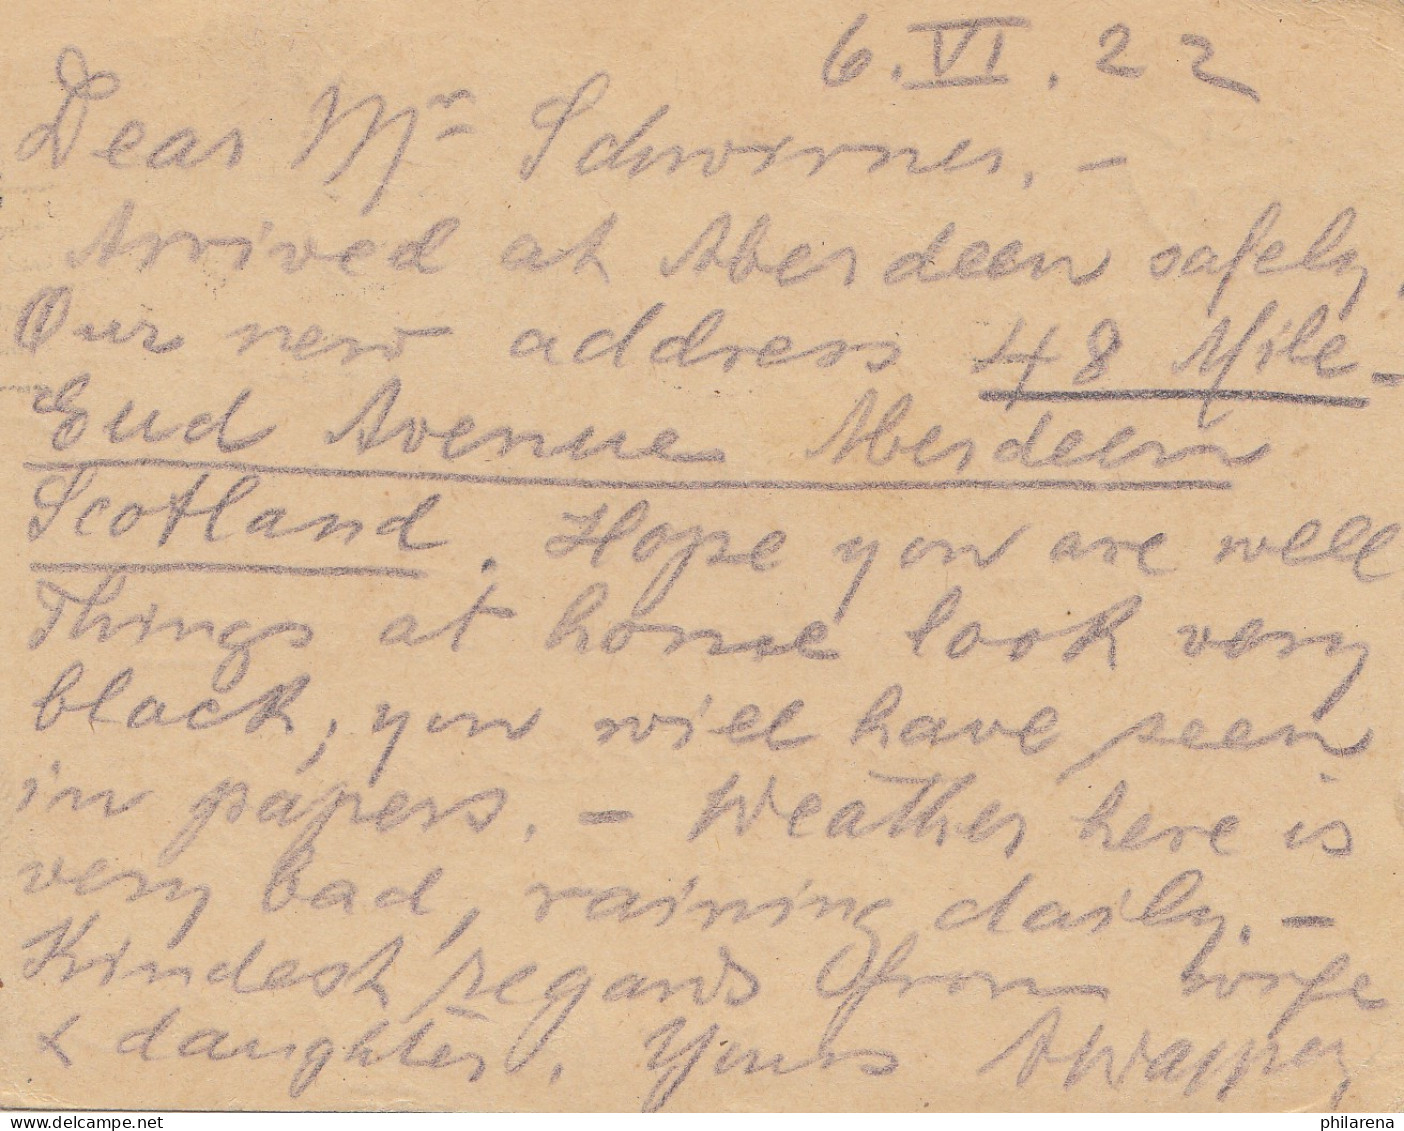 6.VI.22
Dear Mr Schwörner. -
Arrived at Aberdeen safely.
Our new address 48 Mile-
End Avenue Aberdeen
Scotland. Hope you are well
Things at home look very
black, you will have seen
in papers. - Weather here is
very bad, raining daily. -
Kindest regards from wife
& daughter. Yours
philarena